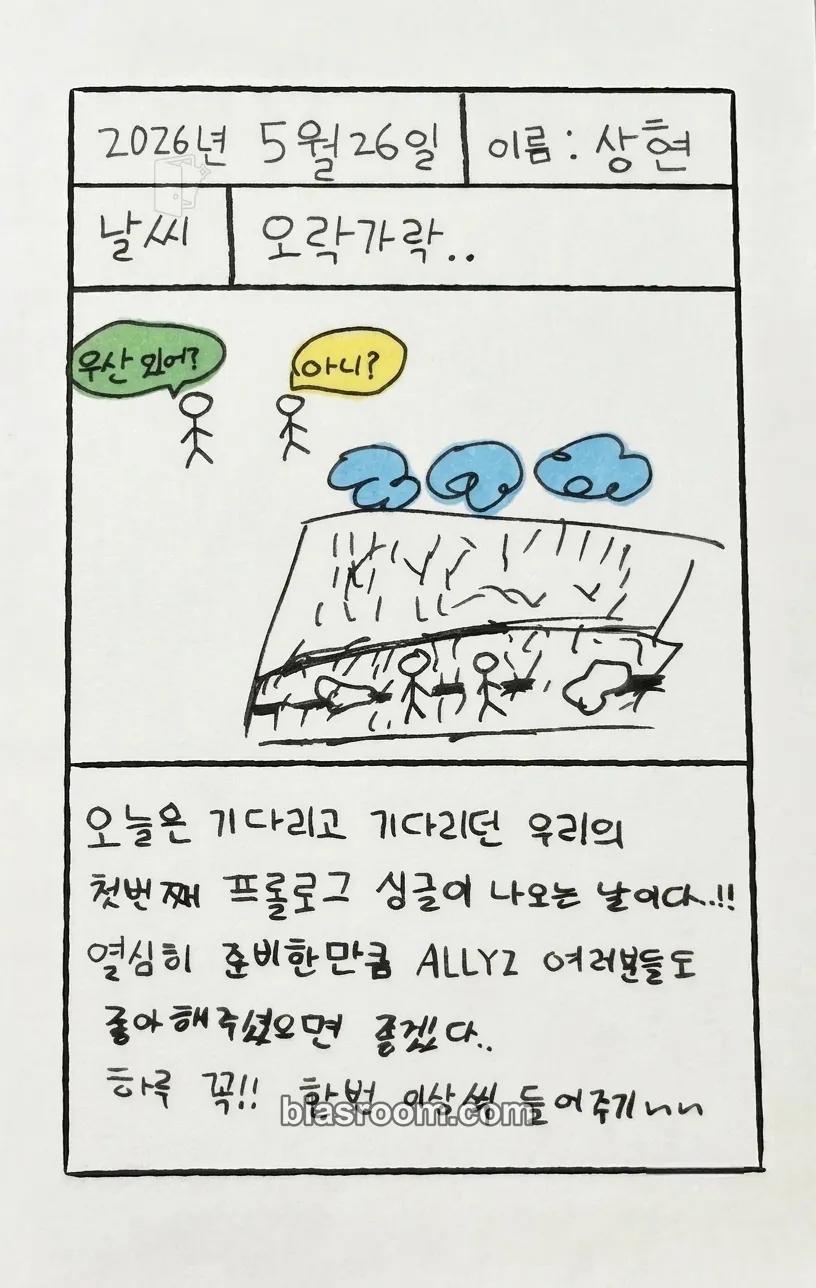 2026년 5월 26일 이름 : 상현
날씨 오락가락..
우산 있어? 아니?
오늘은 기다리고 기다리던 우리의
첫번째 프롤로그 싱글이 나오는 날이다..!!
열심히 준비한만큼 ALLYZ 여러분들도
좋아해주셨으면 좋겠다..
하루 꼭!! 한번 이상씩 들어주기ㄴㄴ
biasroom.com